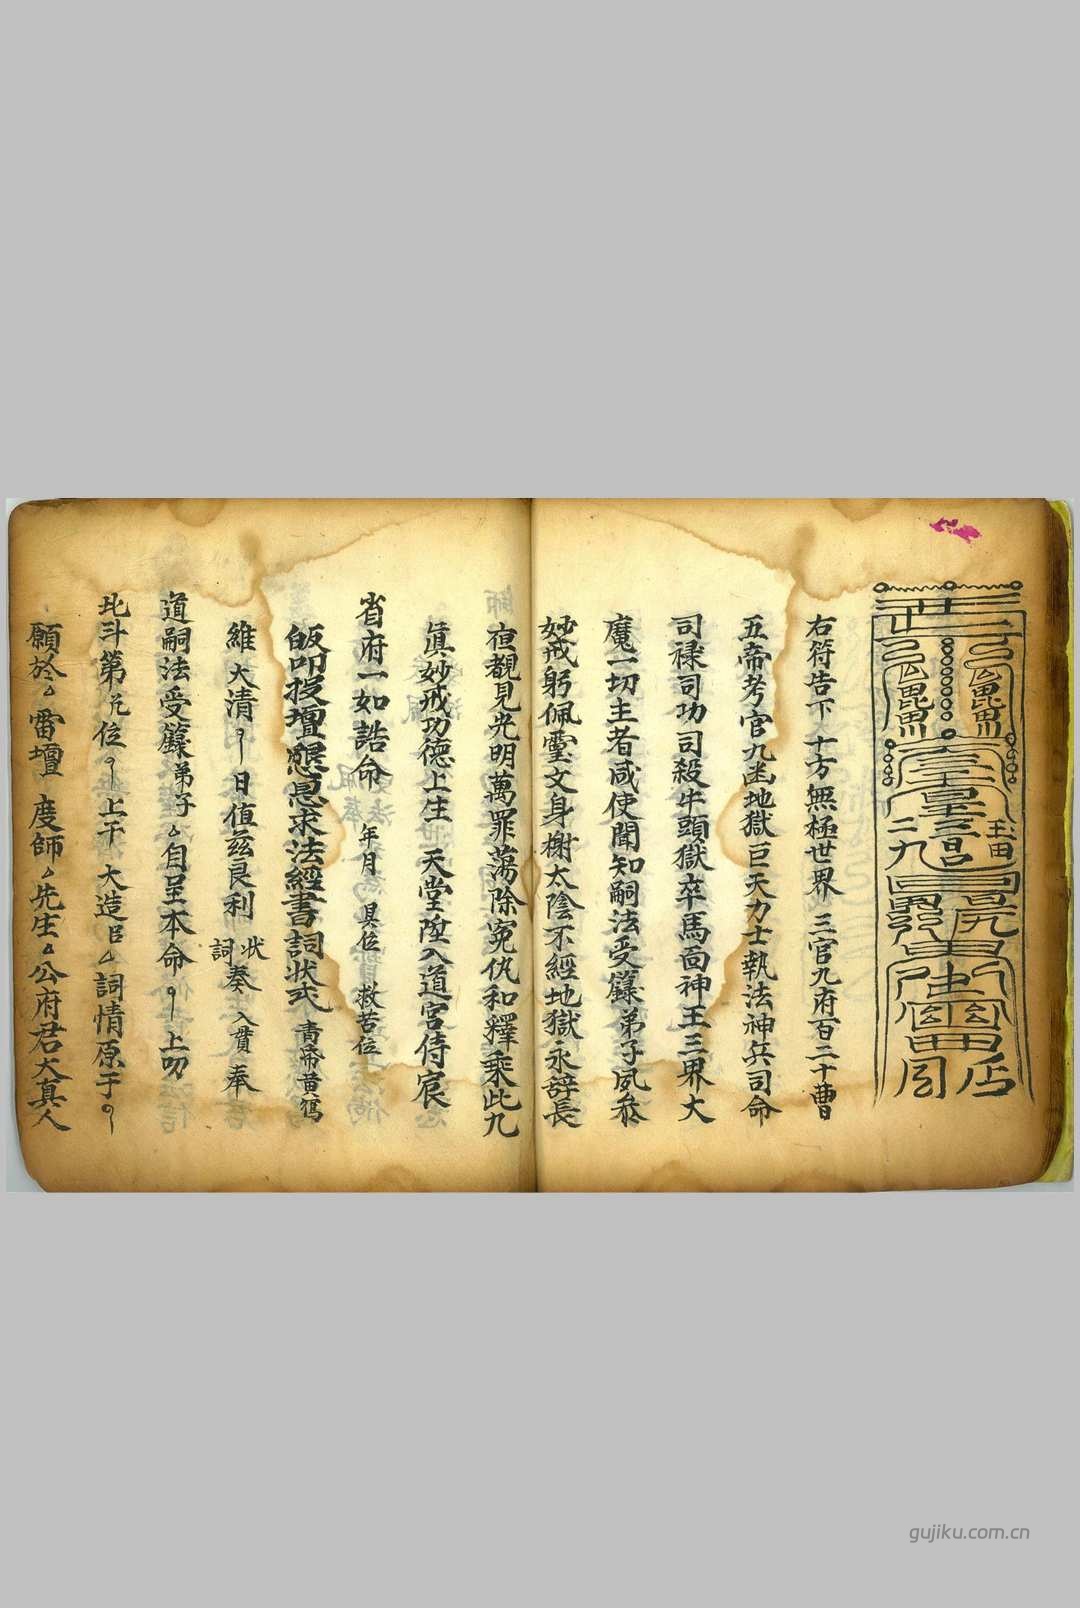 右符告下十方無極世界三官九府百二十曹
五帝考官九幽地獄巨天力士執法神兵司命
司禄司功司殺牛頭獄卒馬面神王三界大
魔一切主者咸使聞知嗣法受籙弟子夙叅
妙戒躬佩靈文身謝太陰不經地獄永辞長
夜覩見光明萬罪蕩除冤仇和釋乘此九
眞妙戒功德上生天堂陞入道宫侍宸
省府一如誥命 年月 具位 救苦位
皈叩授壇懇恩求法經書詞状式 青帋黄寫
維大清 日值兹良利 状詞 奏 入賫奉
道嗣法受籙弟子 自呈本命 上叩
北斗第 位 上干大造 詞情原于
願於 雷壇 度師 先生 公府君大真人
gujiku.com.cn